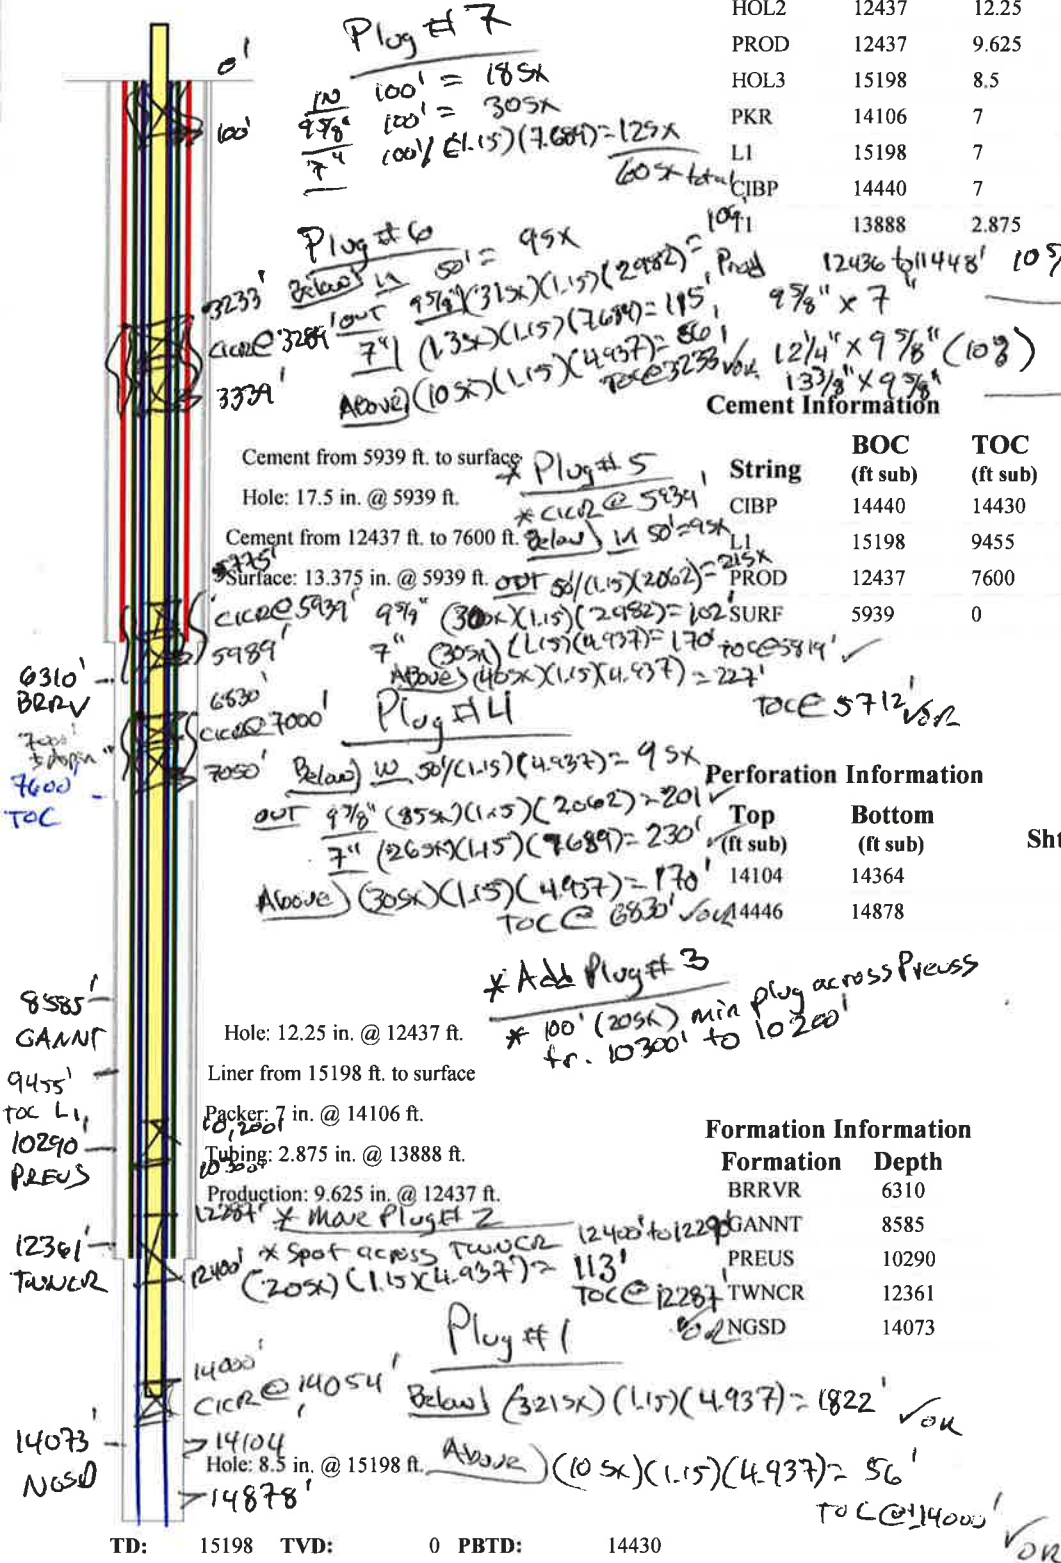 HOL2 12437 12.25
PROD 12437 9.625
HOL3 15198 8.5
PKR 14106 7
L1 15198 7
CIBP 14440 7
T1 13888 2.875
Plug #7
0'
100'
IN 100' = 18sx
9 5/8" 100' = 30sx
7" 100'/(1.15)(7.689)=12sx
60sx total
Plug #6
Below) IN 50' = 9sx
OUT 9 5/8" (31sx)(1.15)(2.982)= 109'
7" (13sx)(1.15)(7.689)= 115'
Above) (10sx)(1.15)(4.937)= 56'
TOC @ 3233' ✓OK
3233'
CICR @ 3289'
3339'
Prod 12436 to 11448' 10 5/
9 5/8" x 7"
12 1/4" x 9 5/8" (10%)
13 3/8" x 9 5/8"
Cement Information
String BOC (ft sub) TOC (ft sub)
CIBP 14440 14430
L1 15198 9455
PROD 12437 7600
SURF 5939 0
Cement from 5939 ft. to surface
Hole: 17.5 in. @ 5939 ft.
Cement from 12437 ft. to 7600 ft.
Surface: 13.375 in. @ 5939 ft.
* Plug #5
* CICR @ 5939'
Below) IN 50'=9sx
OUT 50'/(1.15)(2062)= 21sx
9 5/8" (30sx)(1.15)(2.982)= 102'
7" (30sx)(1.15)(4.937)= 170' TOC @ 5819' ✓
Above) (40sx)(1.15)(4.937)= 227'
TOC @ 5712' ✓OK
5775'
CICR @ 5939'
5989'
6310'
BRRV
6830'
CICR @ 7000'
7050'
7600'
TOC
Plug #4
Below) IN 50'/(1.15)(4.937)= 9sx
OUT 9 5/8" (85sx)(1.15)(2062)=201' ✓
7" (26sx)(1.15)(7.689)= 230' ✓
Above) (30sx)(1.15)(4.937)= 170'
TOC @ 6830' ✓OK
Perforation Information
Top (ft sub) Bottom (ft sub) Sht
14104 14364
14446 14878
* Add Plug #3
* 100' (20sx) min plug across Preuss
fr. 10300' to 10200'
8585'
GANNT
9455'
TOC L1,
10290'
PREUS
Hole: 12.25 in. @ 12437 ft.
Liner from 15198 ft. to surface
Packer: 7 in. @ 14106 ft.
10,200'
Tubing: 2.875 in. @ 13888 ft.
10300'
Production: 9.625 in. @ 12437 ft.
Formation Information
Formation Depth
BRRVR 6310
GANNT 8585
PREUS 10290
TWNCR 12361
NGSD 14073
12287' * Move Plug #2
12400' * Spot across TWNCR 12400' to 12290'
(20sx)(1.15)(4.937)= 113'
TOC @ 12287' ✓OK
12361'
TWNCR
Plug #1
14000'
CICR @ 14054'
Below) (321sx)(1.15)(4.937)= 1822' ✓OK
14073'
NGSD
14104'
Hole: 8.5 in. @ 15198 ft.
Above) (10sx)(1.15)(4.937)= 56'
TOC @ 14000' ✓OK
14878'
TD: 15198 TVD: 0 PBTD: 14430